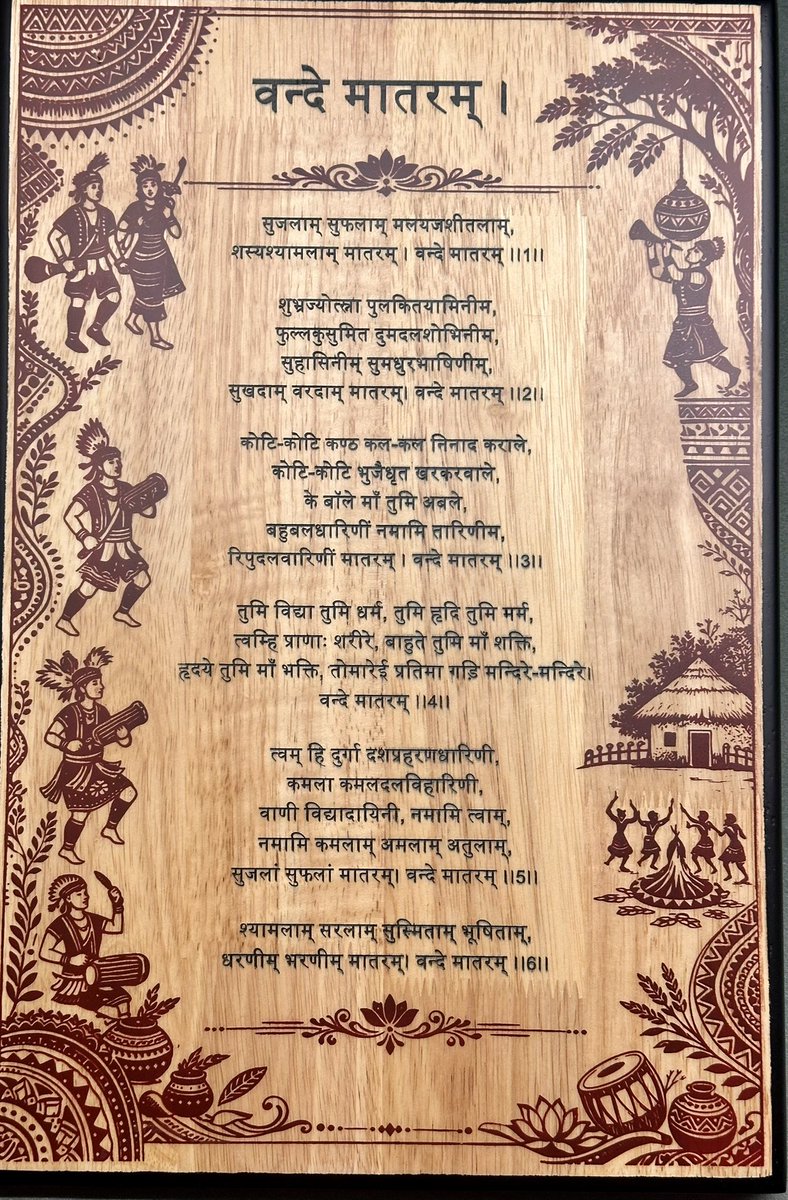 वन्दे मातरम् ।
सुजलाम् सुफलाम् मलयजशीतलाम्,
शस्यश्यामलाम् मातरम् । वन्दे मातरम् ।।1।।
शुभ्रज्योत्स्ना पुलकितयामिनीम,
फुल्लकुसुमित दुमदलशोभिनीम,
सुहासिनीम् सुमधुरभाषिणीम्,
सुखदाम् वरदाम् मातरम्। वन्दे मातरम् ।।2।।
कोटि-कोटि कण्ठ कल-कल निनाद कराले,
कोटि-कोटि भुजैधृत खरकरवाले,
के बॉले माँ तुमि अबले,
बहुबलधारिणीं नमामि तारिणीम,
रिपुदलवारिणीं मातरम् । वन्दे मातरम् ।।3।।
तुमि विद्या तुमि धर्म, तुमि हृदि तुमि मर्म,
त्वम्हि प्राणाः शरीरे, बाहुते तुमि माँ शक्ति,
हृदये तुमि माँ भक्ति, तोमारेई प्रतिमा गड़ि मन्दिरे-मन्दिरे।
वन्दे मातरम् ।।4।।
त्वम् हि दुर्गा दशप्रहरणधारिणी,
कमला कमलदलविहारिणी,
वाणी विद्यादायिनी, नमामि त्वाम्,
नमामि कमलाम् अमलाम् अतुलाम्,
सुजलां सुफलां मातरम्। वन्दे मातरम् ।।5।।
श्यामलाम् सरलाम् सुस्मिताम् भूषिताम्,
धरणीम् भरणीम् मातरम्। वन्दे मातरम् ।।6।।